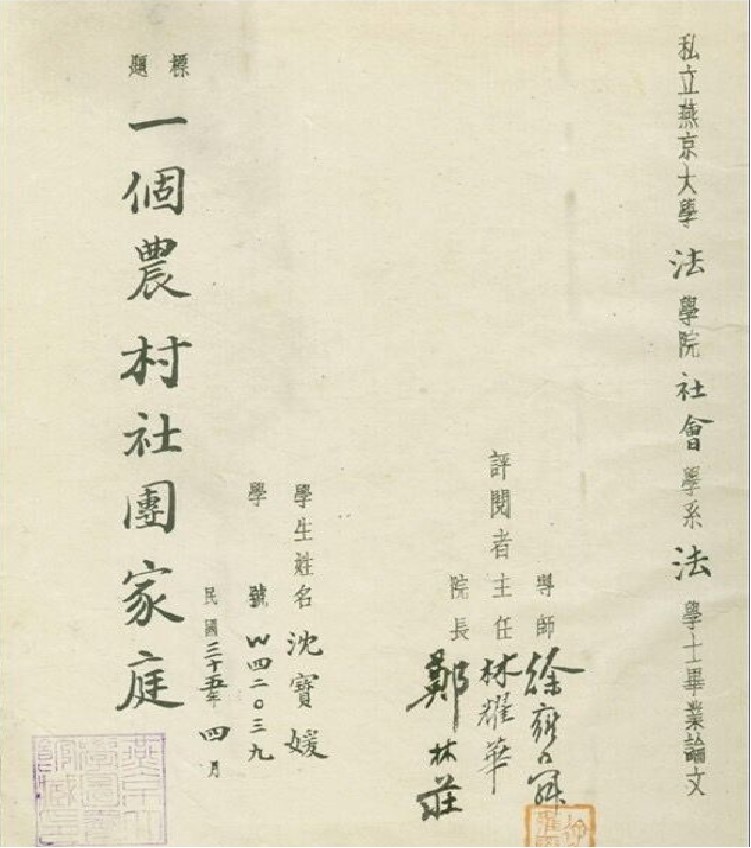 私立燕京大學法學院社會學系法學士畢業論文
導師 徐雍舜
評閱者主任 林耀華
院長 鄭林莊
學生姓名 沈寶媛
學號 W四二〇三九
民國三十五年四月
標題 一個農村社團家庭